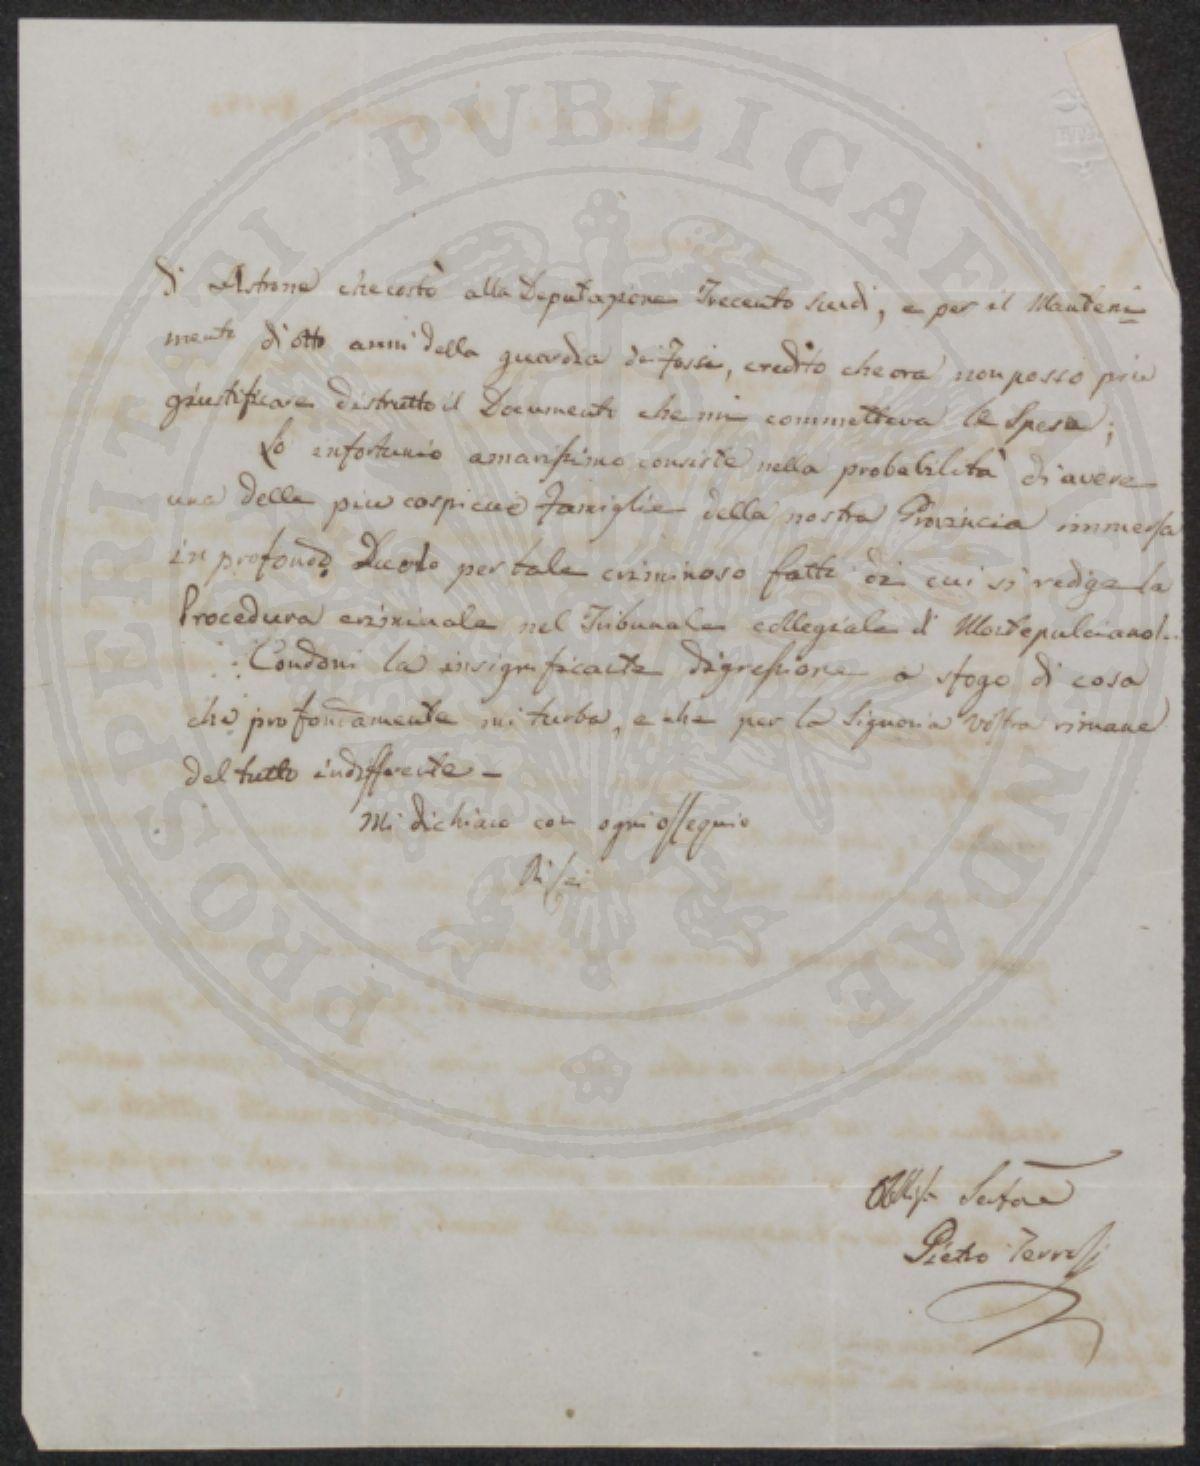 di Astrone che costò alla Deputazione Trecento scudi, e per il Manteni
mento di otto anni della guardia dei Fossi, credito che ora non posso più
giustificare distrutto il Documento che mi commetteva le Spese;
Lo infortunio amarissimo consiste nella probabilità di avere
una delle più cospicue Famiglie della nostra Provincia immersa
in profondo Duolo per tale criminoso fatto di cui si redige la
Procedura criminale nel Tribunale collegiale di Montepulciano.
Condoni la insignificante digressione a sfogo di cosa
che profondamente mi turba, e che per la Signoria Vostra rimane
del tutto indifferente –
Mi dichiaro con ogni ossequio
Di Lei
Servitore
Pietro Terrosi
PROSPERITATI PVBLICAE